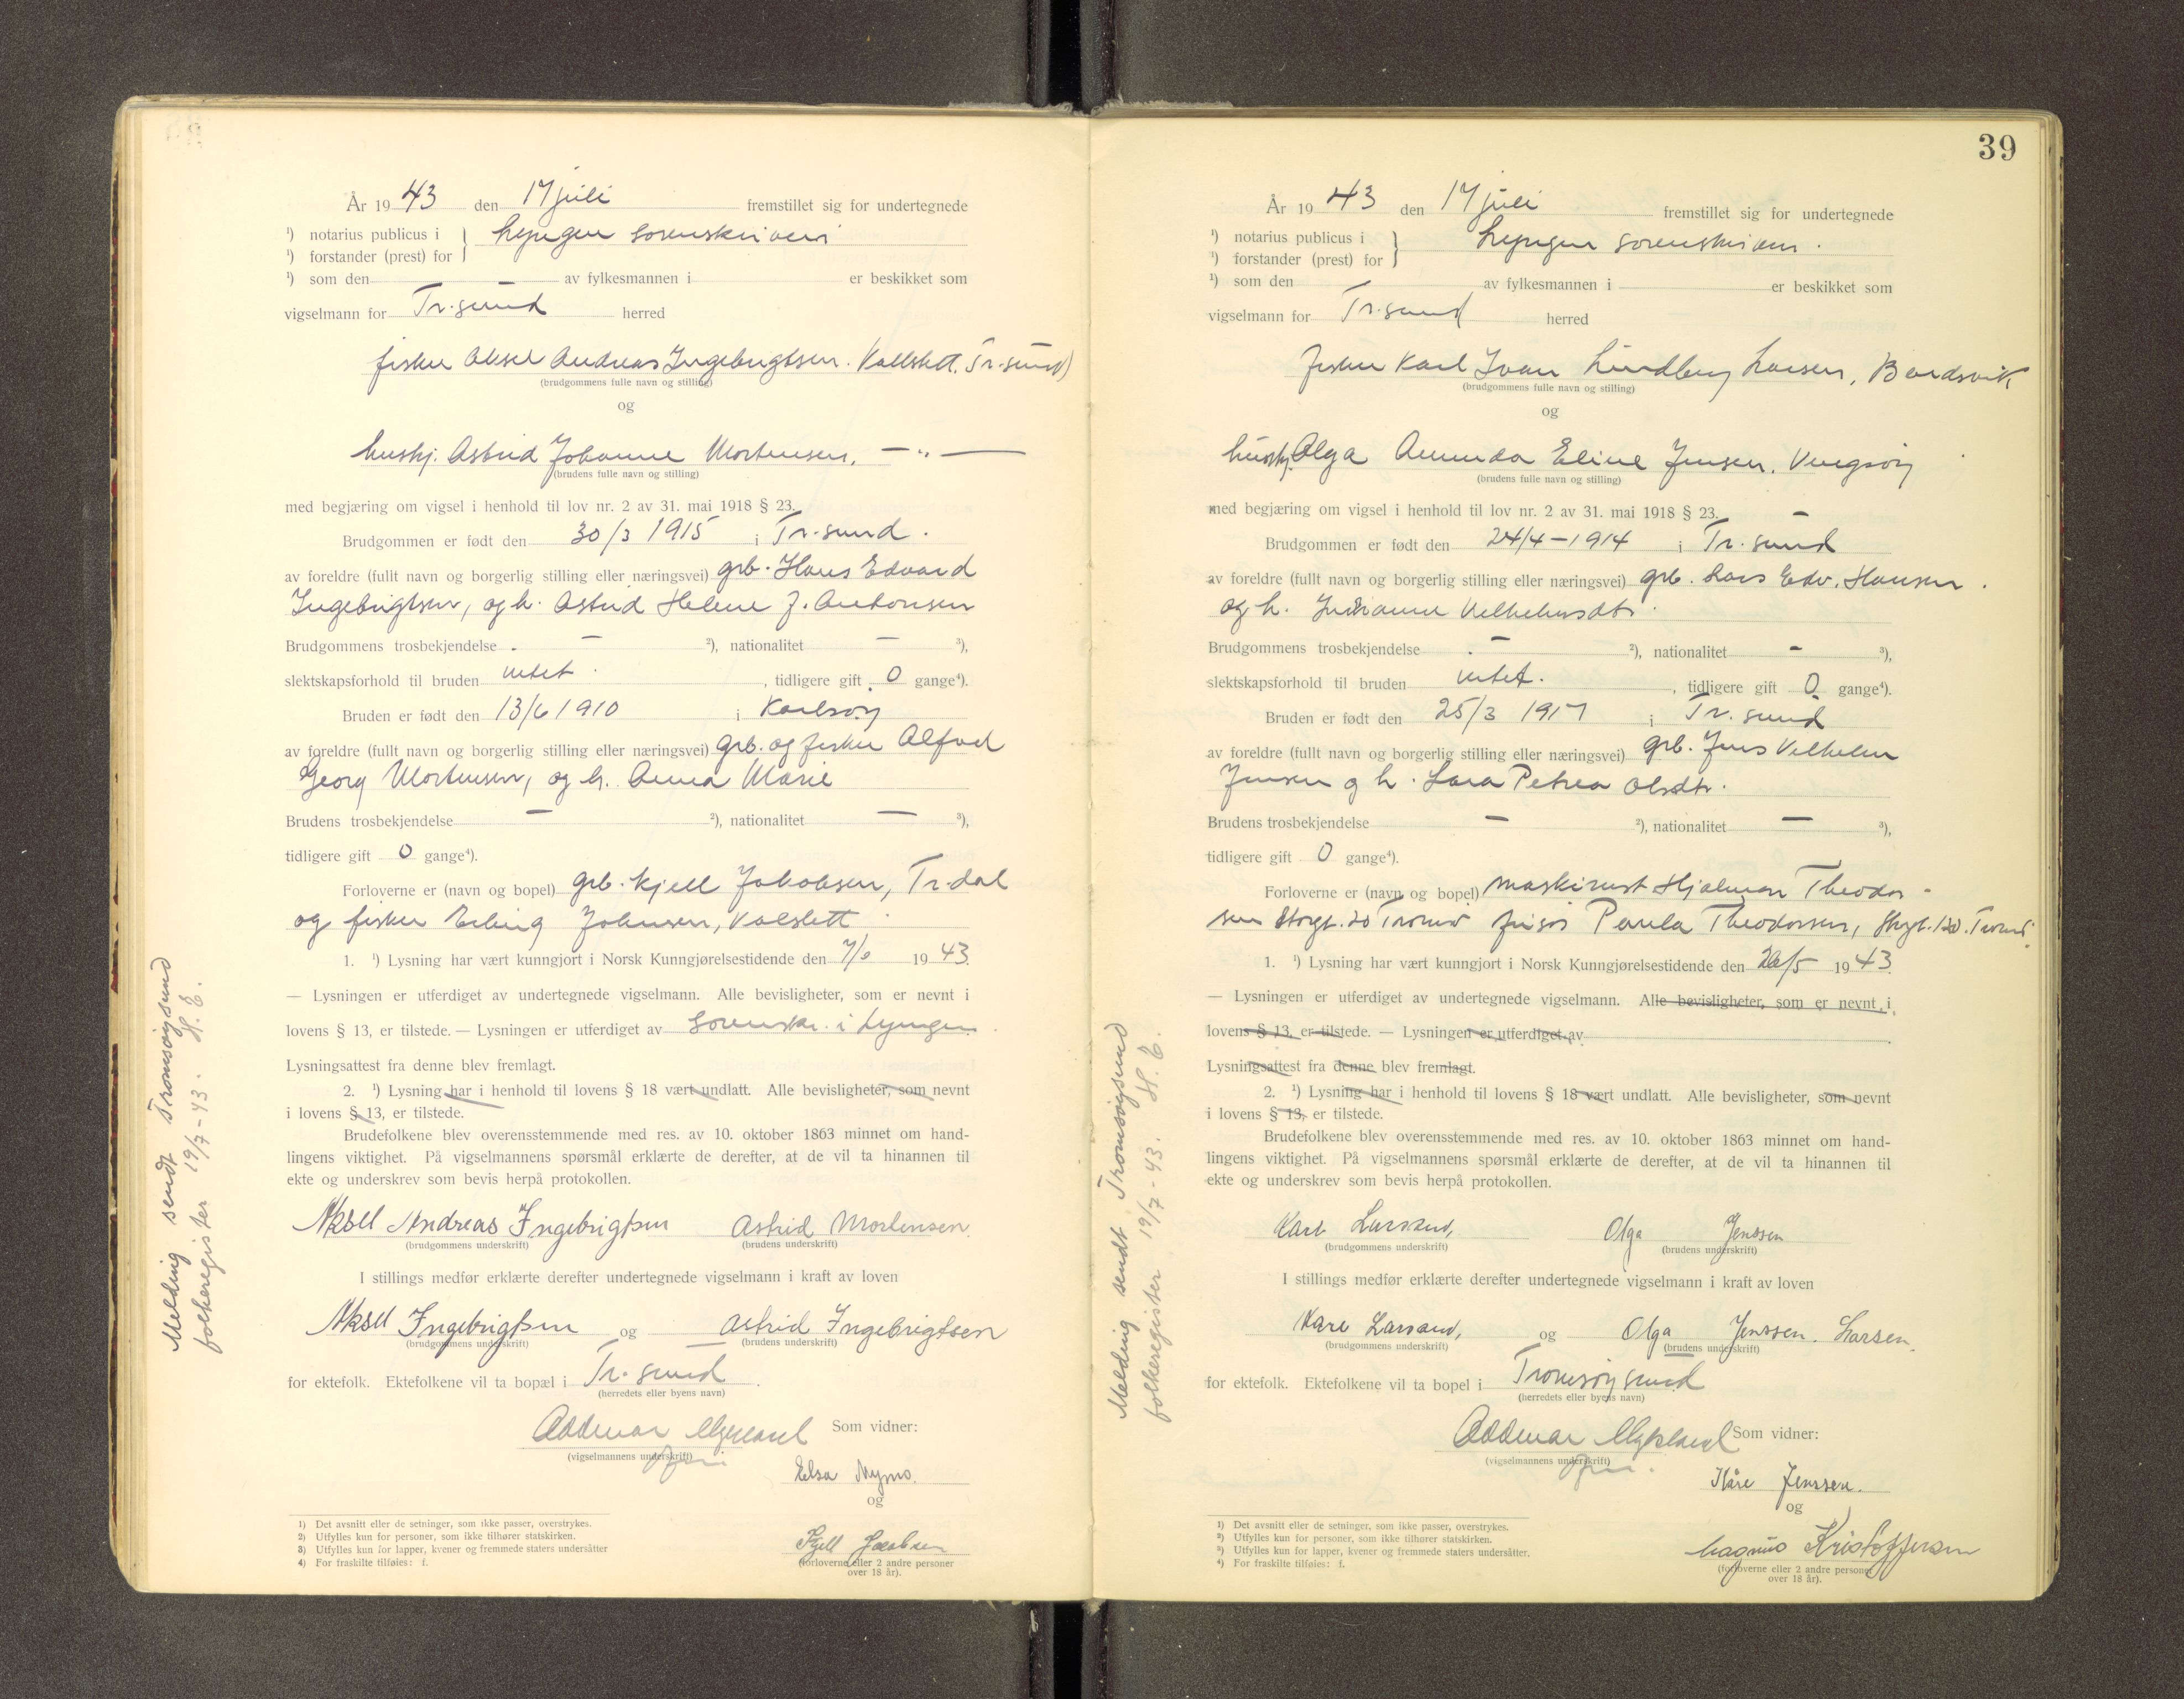 År 19 43 den 17 juli fremstillet sig for undertegnede
¹) notarius publicus i } Lyngen sorenskriveri
¹) forstander (prest) for
¹) som den av fylkesmannen i er beskikket som
vigselmann for Tr.sund herred
fisker Aksel Andreas Ingebrigtsen. Tr.sund)
(brudgommens fulle navn og stilling)
og
hushj. Astrid Johanne Mortensen, — " —
(brudens fulle navn og stilling)
med begjæring om vigsel i henhold til lov nr. 2 av 31. mai 1918 § 23.
Brudgommen er født den 30/3 1915 i Tr.sund.
av foreldre (fullt navn og borgerlig stilling eller næringsvei) grb. Hans Edvard
Ingebrigtsen, og h. Astrid Helene J. Antonsen
Brudgommens trosbekjendelse — ²), nationalitet — ³),
slektskapsforhold til bruden intet. , tidligere gift 0 gange⁴).
Bruden er født den 13/6 1910 i Karlsøy
av foreldre (fullt navn og borgerlig stilling eller næringsvei) grb. og fisker Alfred
Georg Mortensen, og h. Anna Marie
Brudens trosbekjendelse — ²), nationalitet — ³),
tidligere gift 0 gange⁴).
Forloverne er (navn og bopel) grb. Kjell Jakobsen, Tr.dal
og fisker Erling Johnsen, Valslett
1. ¹) Lysning har vært kunngjort i Norsk Kunngjørelsestidende den 19 43.
— Lysningen er utferdiget av undertegnede vigselmann. Alle bevisligheter, som er nevnt i
lovens § 13, er tilstede. — Lysningen er utferdiget av sorenskr. i Lyngen
Lysningsattest fra denne blev fremlagt.
2. ¹) Lysning har i henhold til lovens § 18 vært undlatt. Alle bevisligheter, som nevnt
i lovens § 13, er tilstede.
Brudefolkene blev overensstemmende med res. av 10. oktober 1863 minnet om hand-
lingens viktighet. På vigselmannens spørsmål erklærte de derefter, at de vil ta hinannen til
ekte og underskrev som bevis herpå protokollen.
Aksel Andreas Ingebrigtsen Astrid Mortensen.
(brudgommens underskrift) (brudens underskrift)
I stillings medfør erklærte derefter undertegnede vigselmann i kraft av loven
Aksel Ingebrigtsen og Astrid Ingebrigtsen
(brudgommens underskrift) (brudens underskrift)
for ektefolk. Ektefolkene vil ta bopæl i Tr.sund.
(herredets eller byens navn)
Oddmar Myrland Som vidner:
(vigselmannens underskrift)
Elsa Nymo.
og
Kjell Jacobsen
(forloverne eller 2 andre personer
over 18 år).
1) Det avsnitt eller de setninger, som ikke passer, overstrykes.
2) Utfylles kun for personer, som ikke tilhører statskirken.
3) Utfylles kun for lapper, kvener og fremmede staters undersåtter
4) For fraskilte tilføies: f.
Melding sendt Tromsøysund
folkeregister 19/7-43. H. E.
39
År 19 43 den 17 juli fremstillet sig for undertegnede
¹) notarius publicus i } Lyngen sorenskriveri.
¹) forstander (prest) for
¹) som den av fylkesmannen i er beskikket som
vigselmann for Tr.sund herred
fisker Karl Ivar Lindberg Larsen,
(brudgommens fulle navn og stilling)
og
hushj. Olga Amunda Eline Jensen, Vengsøy
(brudens fulle navn og stilling)
med begjæring om vigsel i henhold til lov nr. 2 av 31. mai 1918 § 23.
Brudgommen er født den 24/4 - 1914 i Tr.sund
av foreldre (fullt navn og borgerlig stilling eller næringsvei) grb. Lars Edv. Hansen.
og h.
Brudgommens trosbekjendelse — ²), nationalitet — ³),
slektskapsforhold til bruden intet. , tidligere gift 0 gange⁴).
Bruden er født den 25/3 1917 i Tr.sund
av foreldre (fullt navn og borgerlig stilling eller næringsvei) grb. Jens Vilhelm
Jensen og h. Lara Petrea Olsdtr.
Brudens trosbekjendelse — ²), nationalitet — ³),
tidligere gift 0 gange⁴).
Forloverne er (navn og bopel) maskinist Hjalmar Theodor-
sen Storgt. 20 Tromsø frisør Paula Theodorsen, Tromsø.
1. ¹) Lysning har vært kunngjort i Norsk Kunngjørelsestidende den 26/5 19 43
— Lysningen er utferdiget av undertegnede vigselmann. Alle bevisligheter, som er nevnt i
lovens § 13, er tilstede. — Lysningen er utferdiget av
Lysningsattest fra denne blev fremlagt.
2. ¹) Lysning har i henhold til lovens § 18 vært undlatt. Alle bevisligheter, som nevnt
i lovens § 13, er tilstede.
Brudefolkene blev overensstemmende med res. av 10. oktober 1863 minnet om hand-
lingens viktighet. På vigselmannens spørsmål erklærte de derefter, at de vil ta hinannen til
ekte og underskrev som bevis herpå protokollen.
Karl Olga Jenssen
(brudgommens underskrift) (brudens underskrift)
I stillings medfør erklærte derefter undertegnede vigselmann i kraft av loven
og Olga Jenssen. Larsen.
(brudgommens underskrift) (brudens underskrift)
for ektefolk. Ektefolkene vil ta bopel i Tromsøysund
(herredets eller byens navn)
Oddmar Myrland Som vidner:
(vigselmannens underskrift)
Kåre Jenssen.
og
Magnus Kristoffersen
(forloverne eller 2 andre personer
over 18 år).
¹) Det avsnitt eller de setninger, som ikke passer, overstrykes.
²) Utfylles kun for personer, som ikke tilhører statskirken.
³) Utfylles kun for lapper, kvener og fremmede staters undersåtter.
⁴) For fraskilte tilføies: f.
Melding sendt Tromsøysund
folkeregister 19/7-43. H. E.